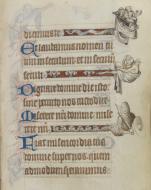 dicimus te
Et laudamus nomen tu
um in seculum et in seculum
seculi
Dignare domine die isto
sine peccato nos custodire
Miserere nri domine mise
rere nri
Fiat misericordia tua
domine super nos quem
admodum speravimus